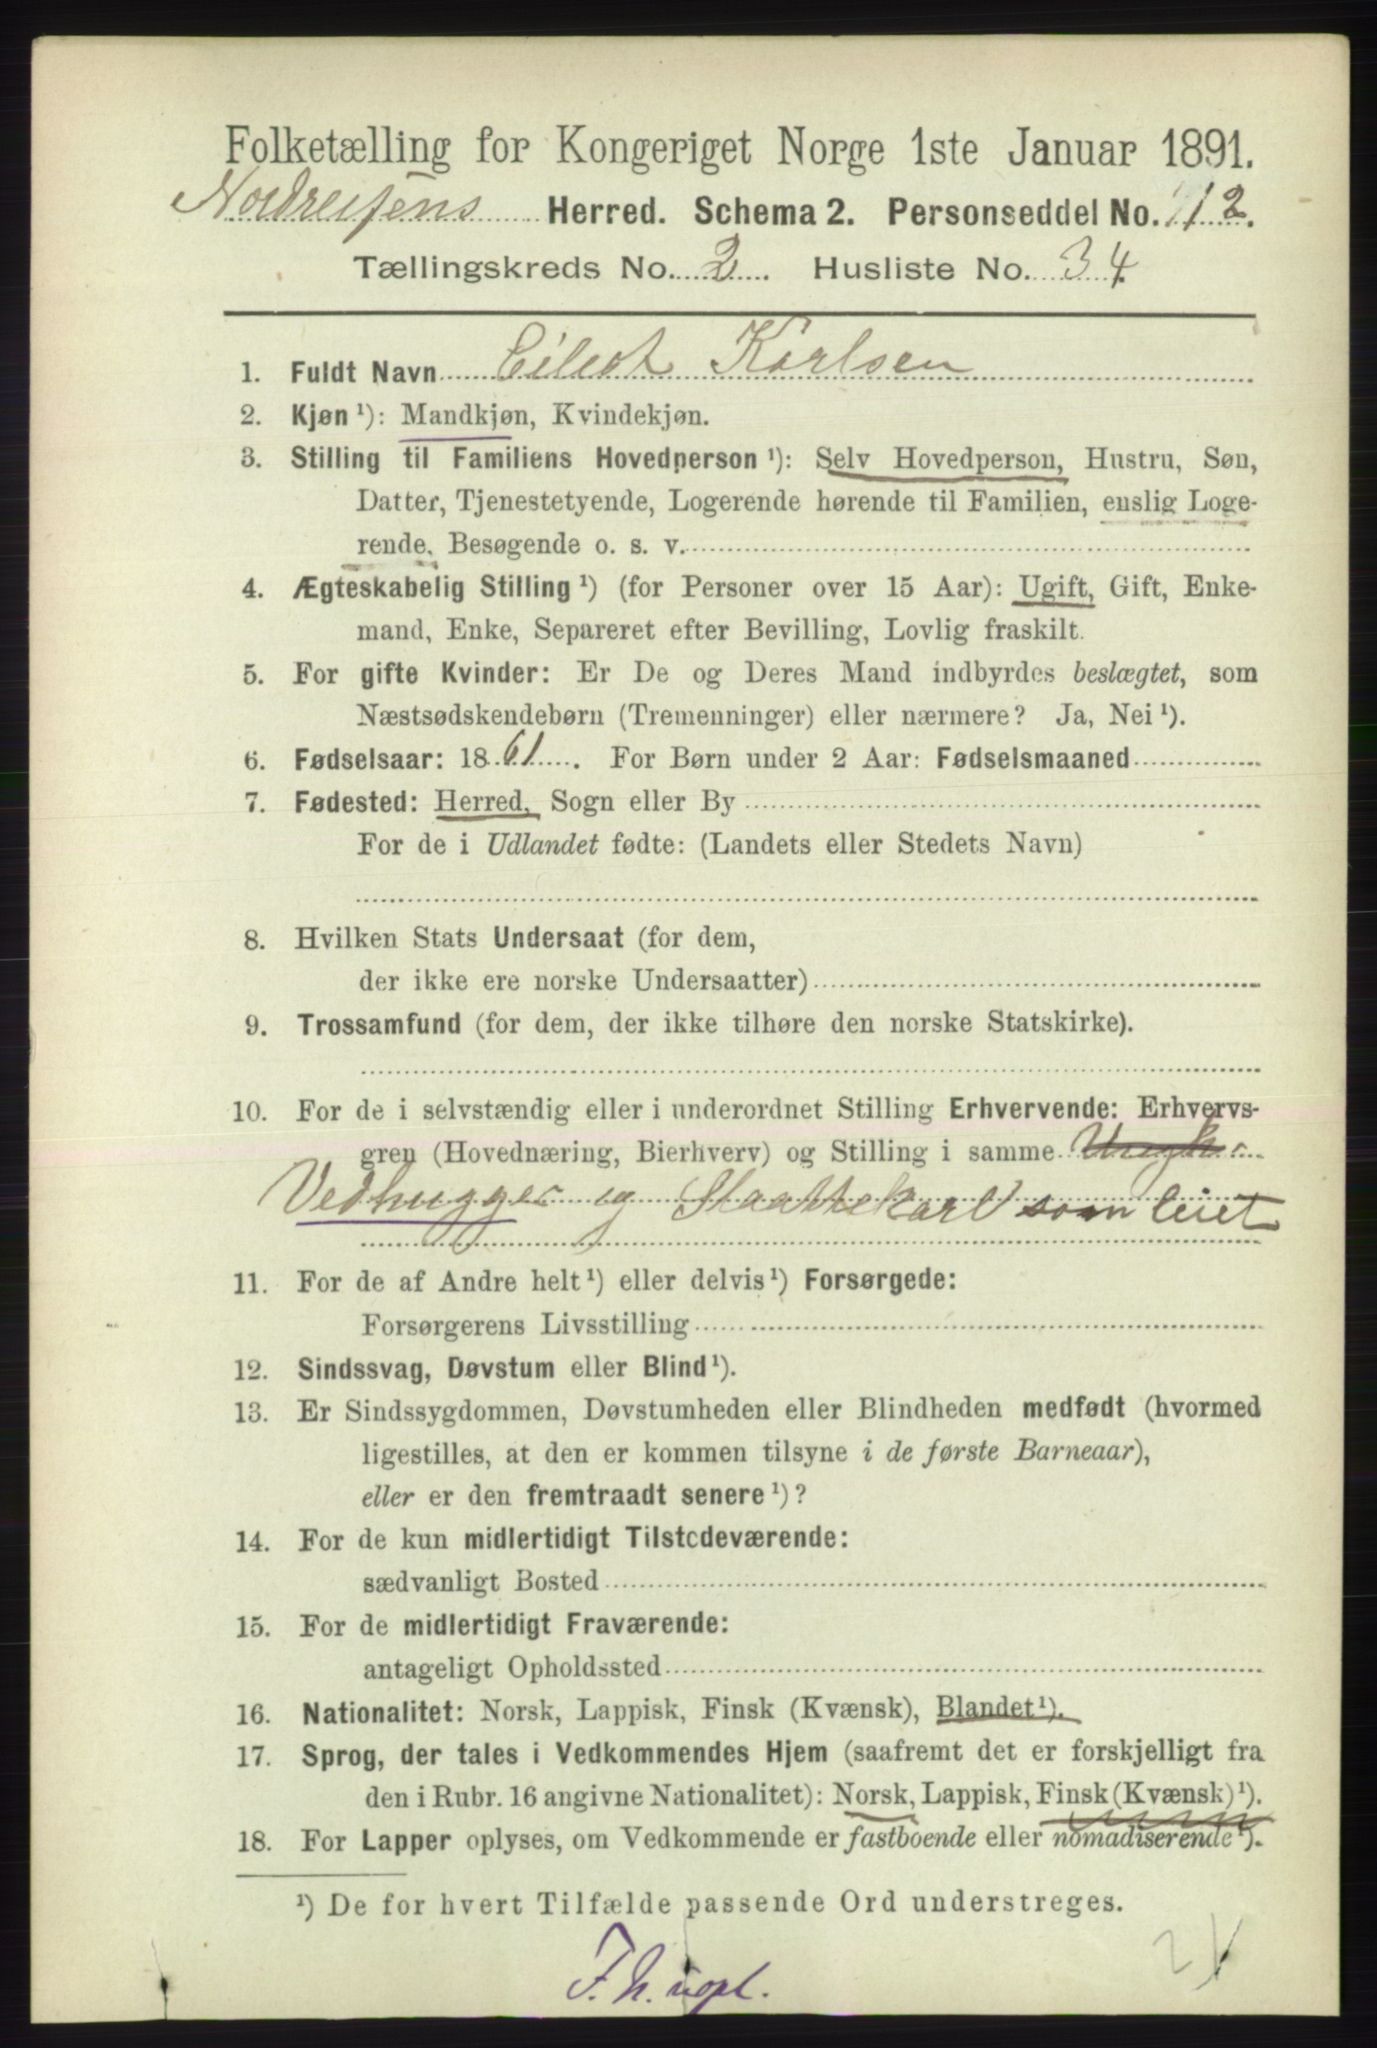 Folketælling for Kongeriget Norge 1ste Januar 1891.
Nordreisens Herred. Schema 2. Personseddel No. 112.
Tællingskreds No. 2. Husliste No. 34
1. Fuldt Navn Eilert Karlsen
2. Kjøn ¹): Mandkjøn, Kvindekjøn.
3. Stilling til Familiens Hovedperson ¹): Selv Hovedperson, Hustru, Søn,
Datter, Tjenestetyende, Logerende hørende til Familien, enslig Loge-
rende, Besøgende o. s. v.
4. Ægteskabelig Stilling ¹) (for Personer over 15 Aar): Ugift, Gift, Enke-
mand, Enke, Separeret efter Bevilling, Lovlig fraskilt.
5. For gifte Kvinder: Er De og Deres Mand indbyrdes beslægtet, som
Næstsødskendebørn (Tremenninger) eller nærmere? Ja, Nei ¹).
6. Fødselsaar: 1861. For Børn under 2 Aar: Fødselsmaaned
7. Fødested: Herred, Sogn eller By
For de i Udlandet fødte: (Landets eller Stedets Navn)
8. Hvilken Stats Undersaat (for dem,
der ikke ere norske Undersaatter)
9. Trossamfund (for dem, der ikke tilhøre den norske Statskirke).
10. For de i selvstændig eller i underordnet Stilling Erhvervende: Erhvervs-
gren (Hovednæring, Bierhverv) og Stilling i samme
Vedhugger og Slaattekarl som leiet
11. For de af Andre helt ¹) eller delvis ¹) Forsørgede:
Forsørgerens Livsstilling
12. Sindssvag, Døvstum eller Blind ¹).
13. Er Sindssygdommen, Døvstumheden eller Blindheden medfødt (hvormed
ligestilles, at den er kommen tilsyne i de første Barneaar),
eller er den fremtraadt senere ¹)?
14. For de kun midlertidigt Tilstedeværende:
sædvanligt Bosted
15. For de midlertidigt Fraværende:
antageligt Opholdssted
16. Nationalitet: Norsk, Lappisk, Finsk (Kvænsk), Blandet ¹).
17. Sprog, der tales i Vedkommendes Hjem (saafremt det er forskjelligt fra
den i Rubr. 16 angivne Nationalitet): Norsk, Lappisk, Finsk (Kvænsk) ¹).
18. For Lapper oplyses, om Vedkommende er fastboende eller nomadiserende ¹).
¹) De for hvert Tilfælde passende Ord understreges.